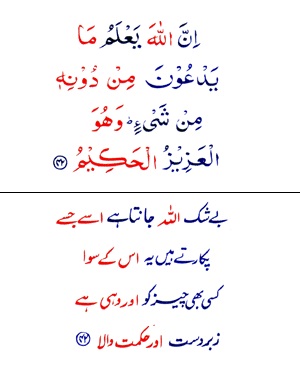 اِنَّ اللّٰهَ يَعْلَمُ مَا
يَدْعُوْنَ مِنْ دُوْنِهٖ
مِنْ شَیْءٍ ؕ وَهُوَ
الْعَزِيْزُ الْحَكِيْمُ ﴿۴۲﴾
بے شک اللہ جانتا ہے اسے جسے
پکارتے ہیں یہ اس کے سوا
کسی بھی چیز کو اور وہی ہے
زبردست اور حکمت والا ﴿۴۲﴾